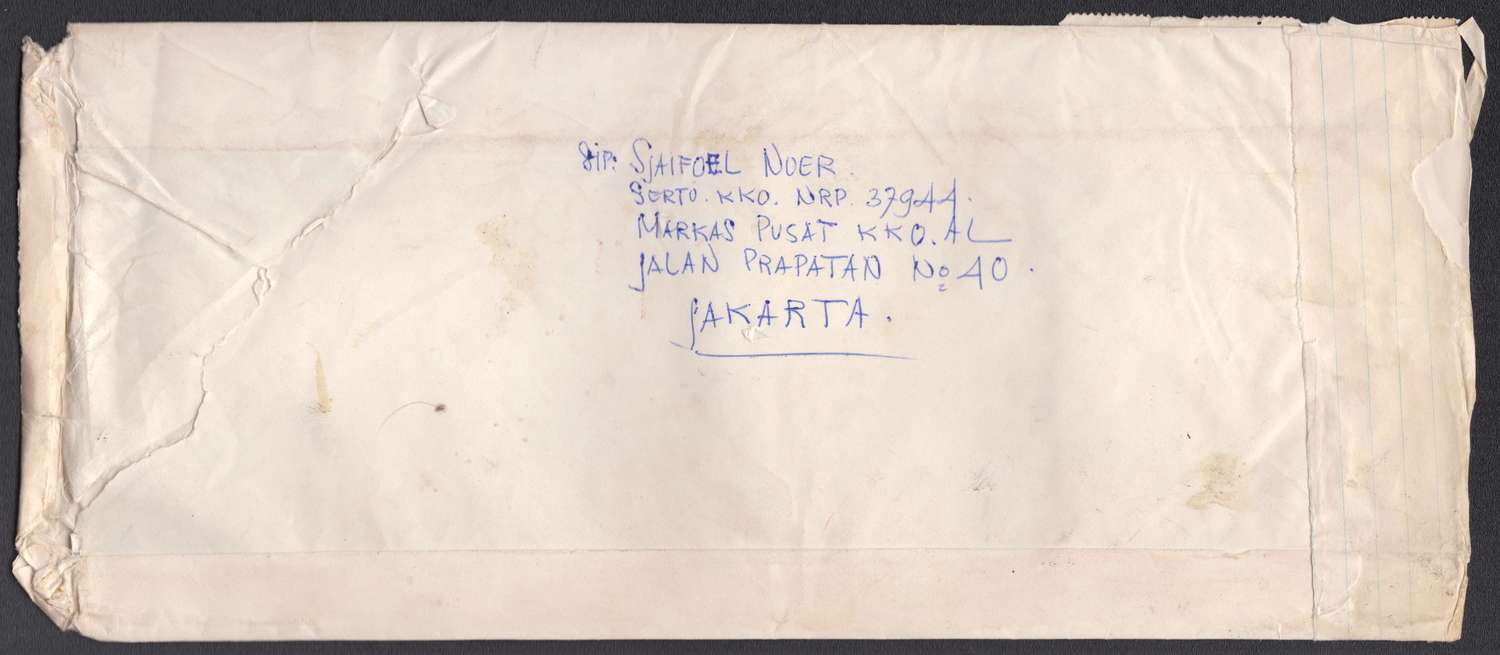 Sip: SJAIFOEL NOER.
SERTU. KKO. NRP. 37944.
MARKAS PUSAT KKO. AL
JALAN PRAPATAN No 40.
JAKARTA.